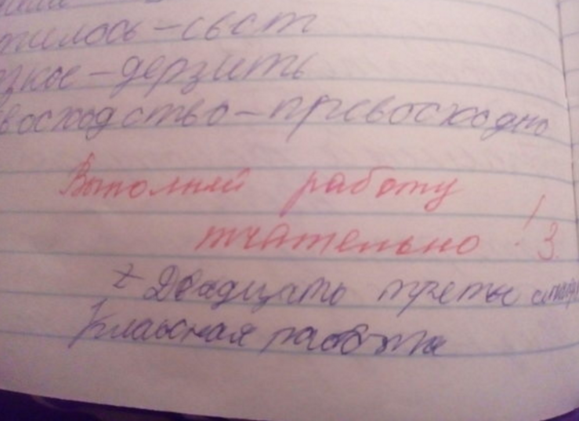 тилось – свист
зкое – дерзить
восходство – превосходно
Выполняй работу
тщательно! 3.
Двадцать третье
Классная работа